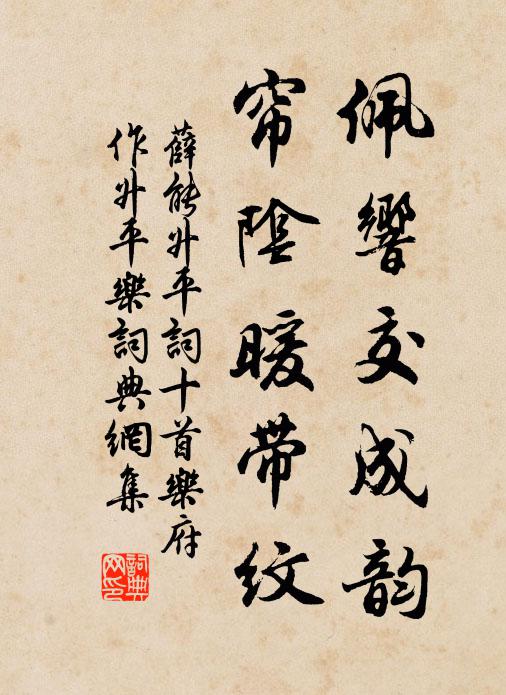 佩響交成韵
帘陰暖带紋
薛能升平詞十首樂府
作升平樂詞典網集
詞典
网印